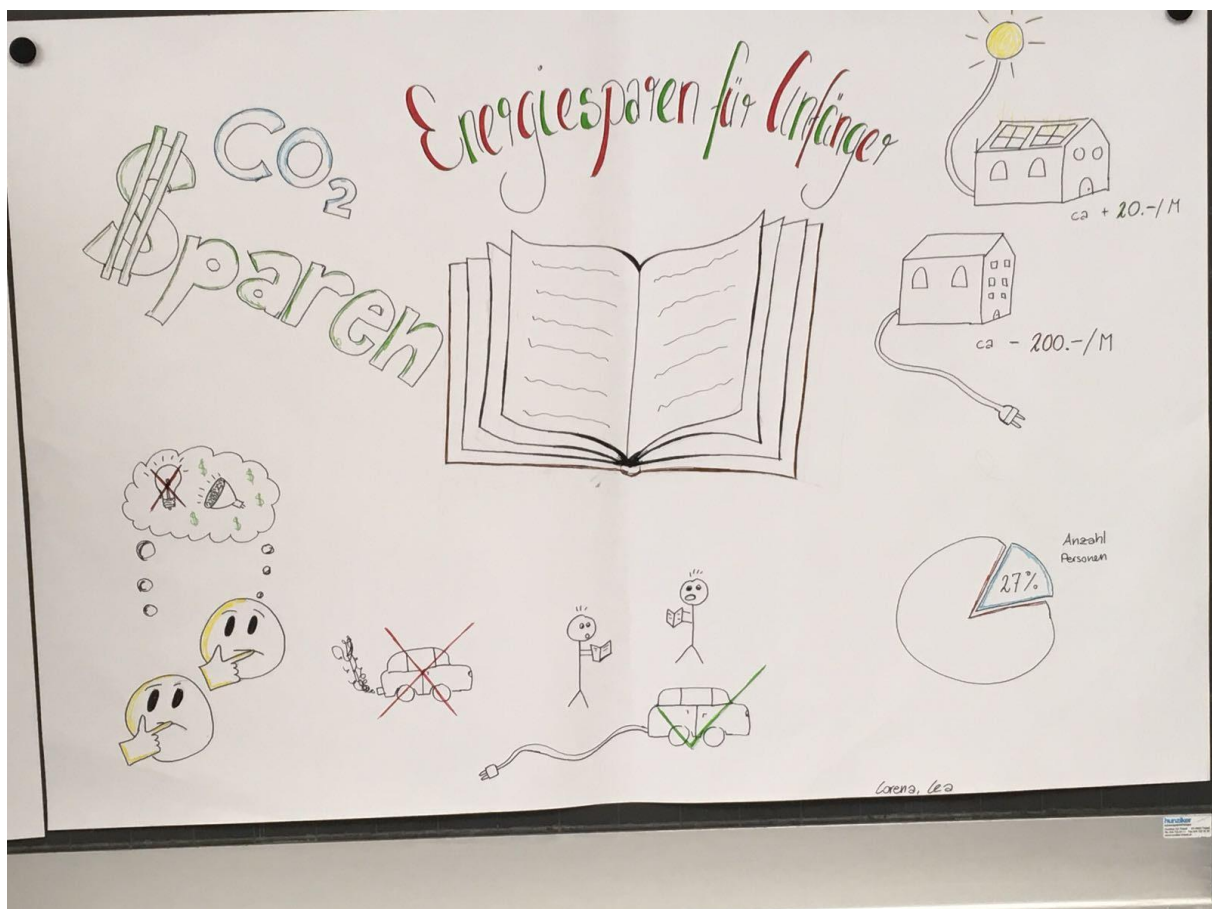 Energiesparen für Anfänger
CO₂
$paren
ca + 20.-/M
ca - 200.-/M
27%
Anzahl
Personen
Lorena, Lea
hunziker